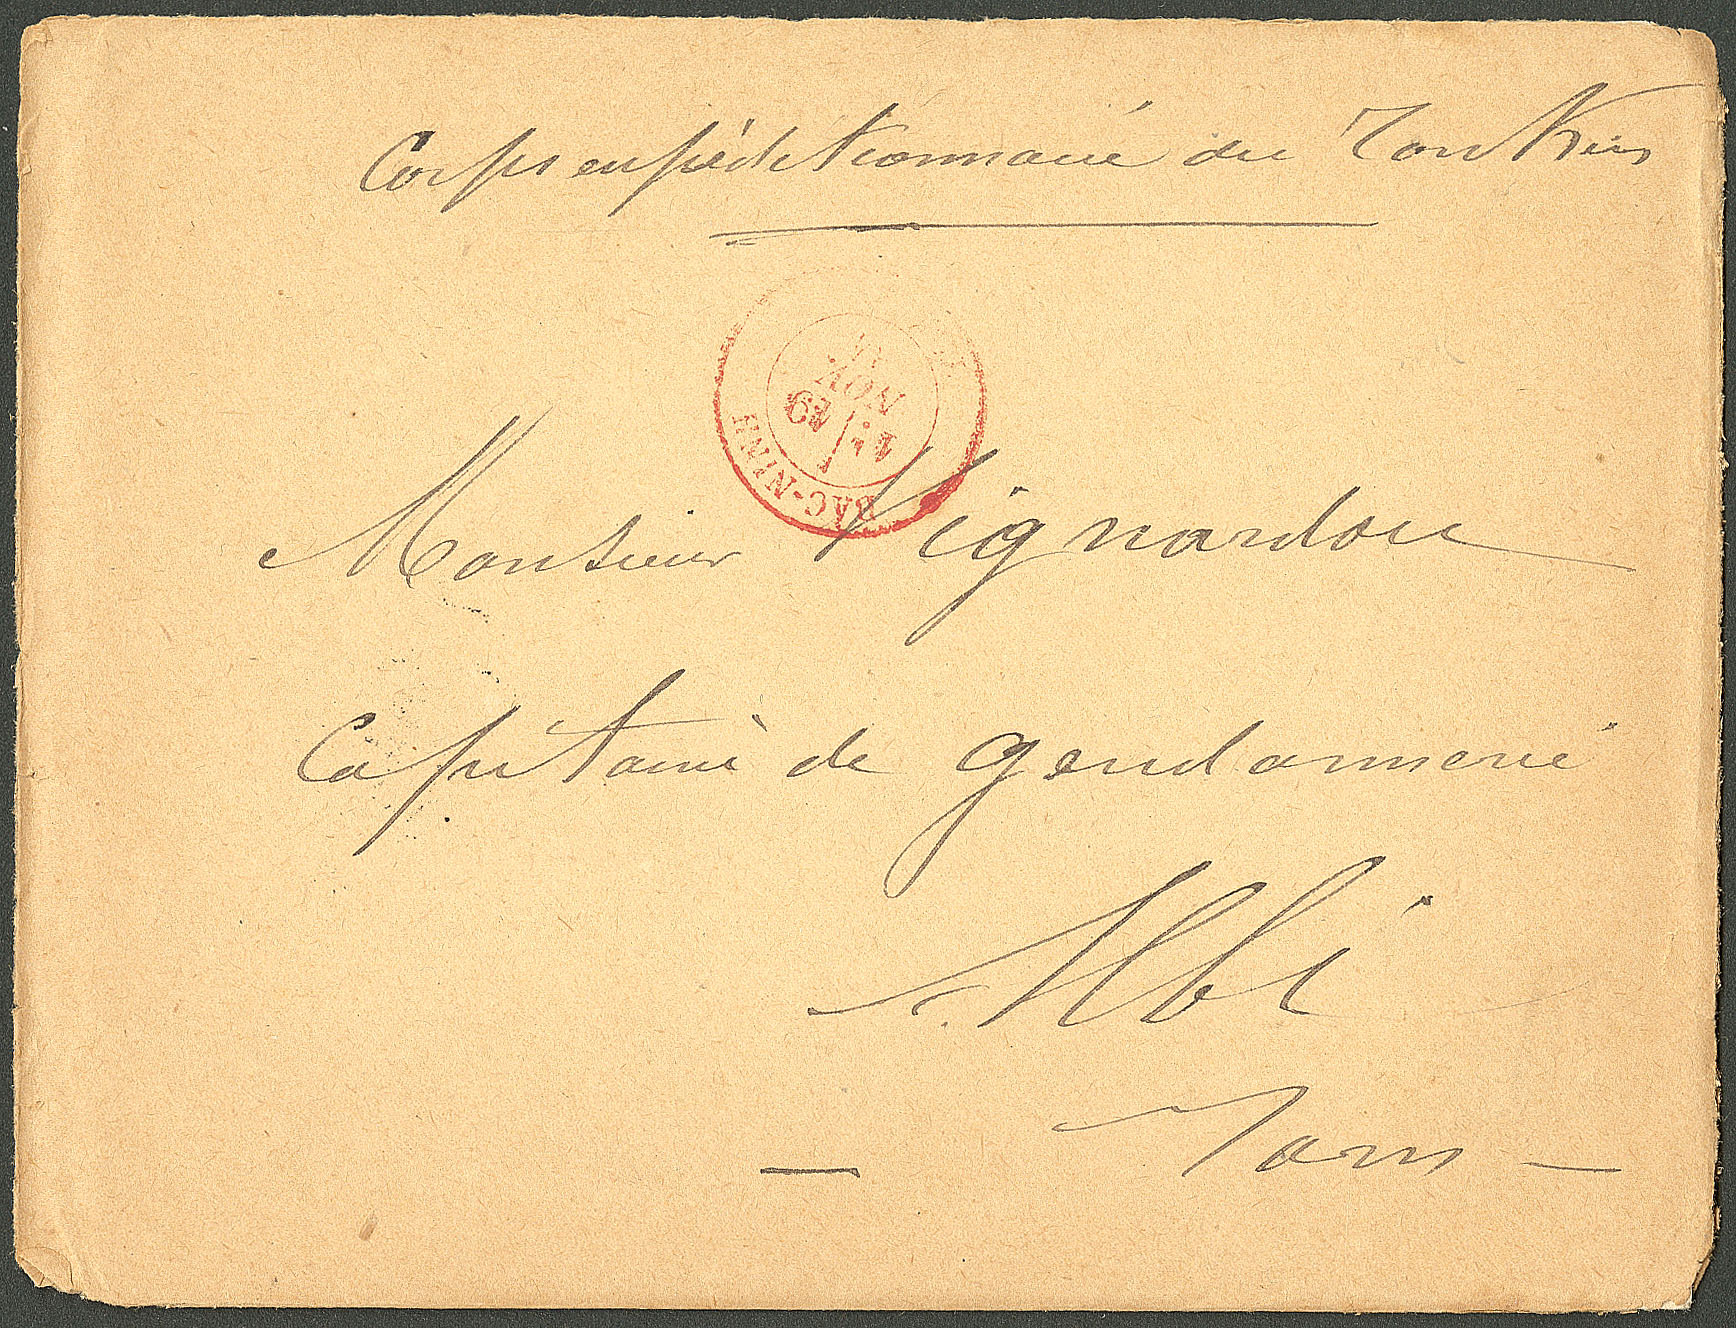 Corps expéditionnaire du Tonkin
BAC-NINH
1e
/
19
NOV.
Monsieur Vignardou
Capitaine de gendarmerie
Albi
Tarn